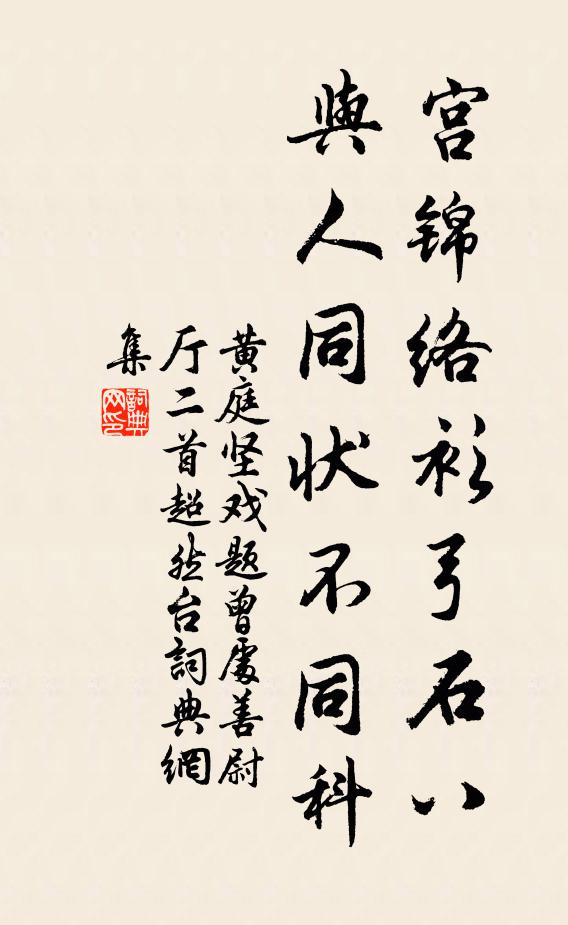 宫锦络衫弓石八
與人同状不同科
黄庭坚戏题曾處善尉
厅二首超然台詞典網
集
詞典
网印